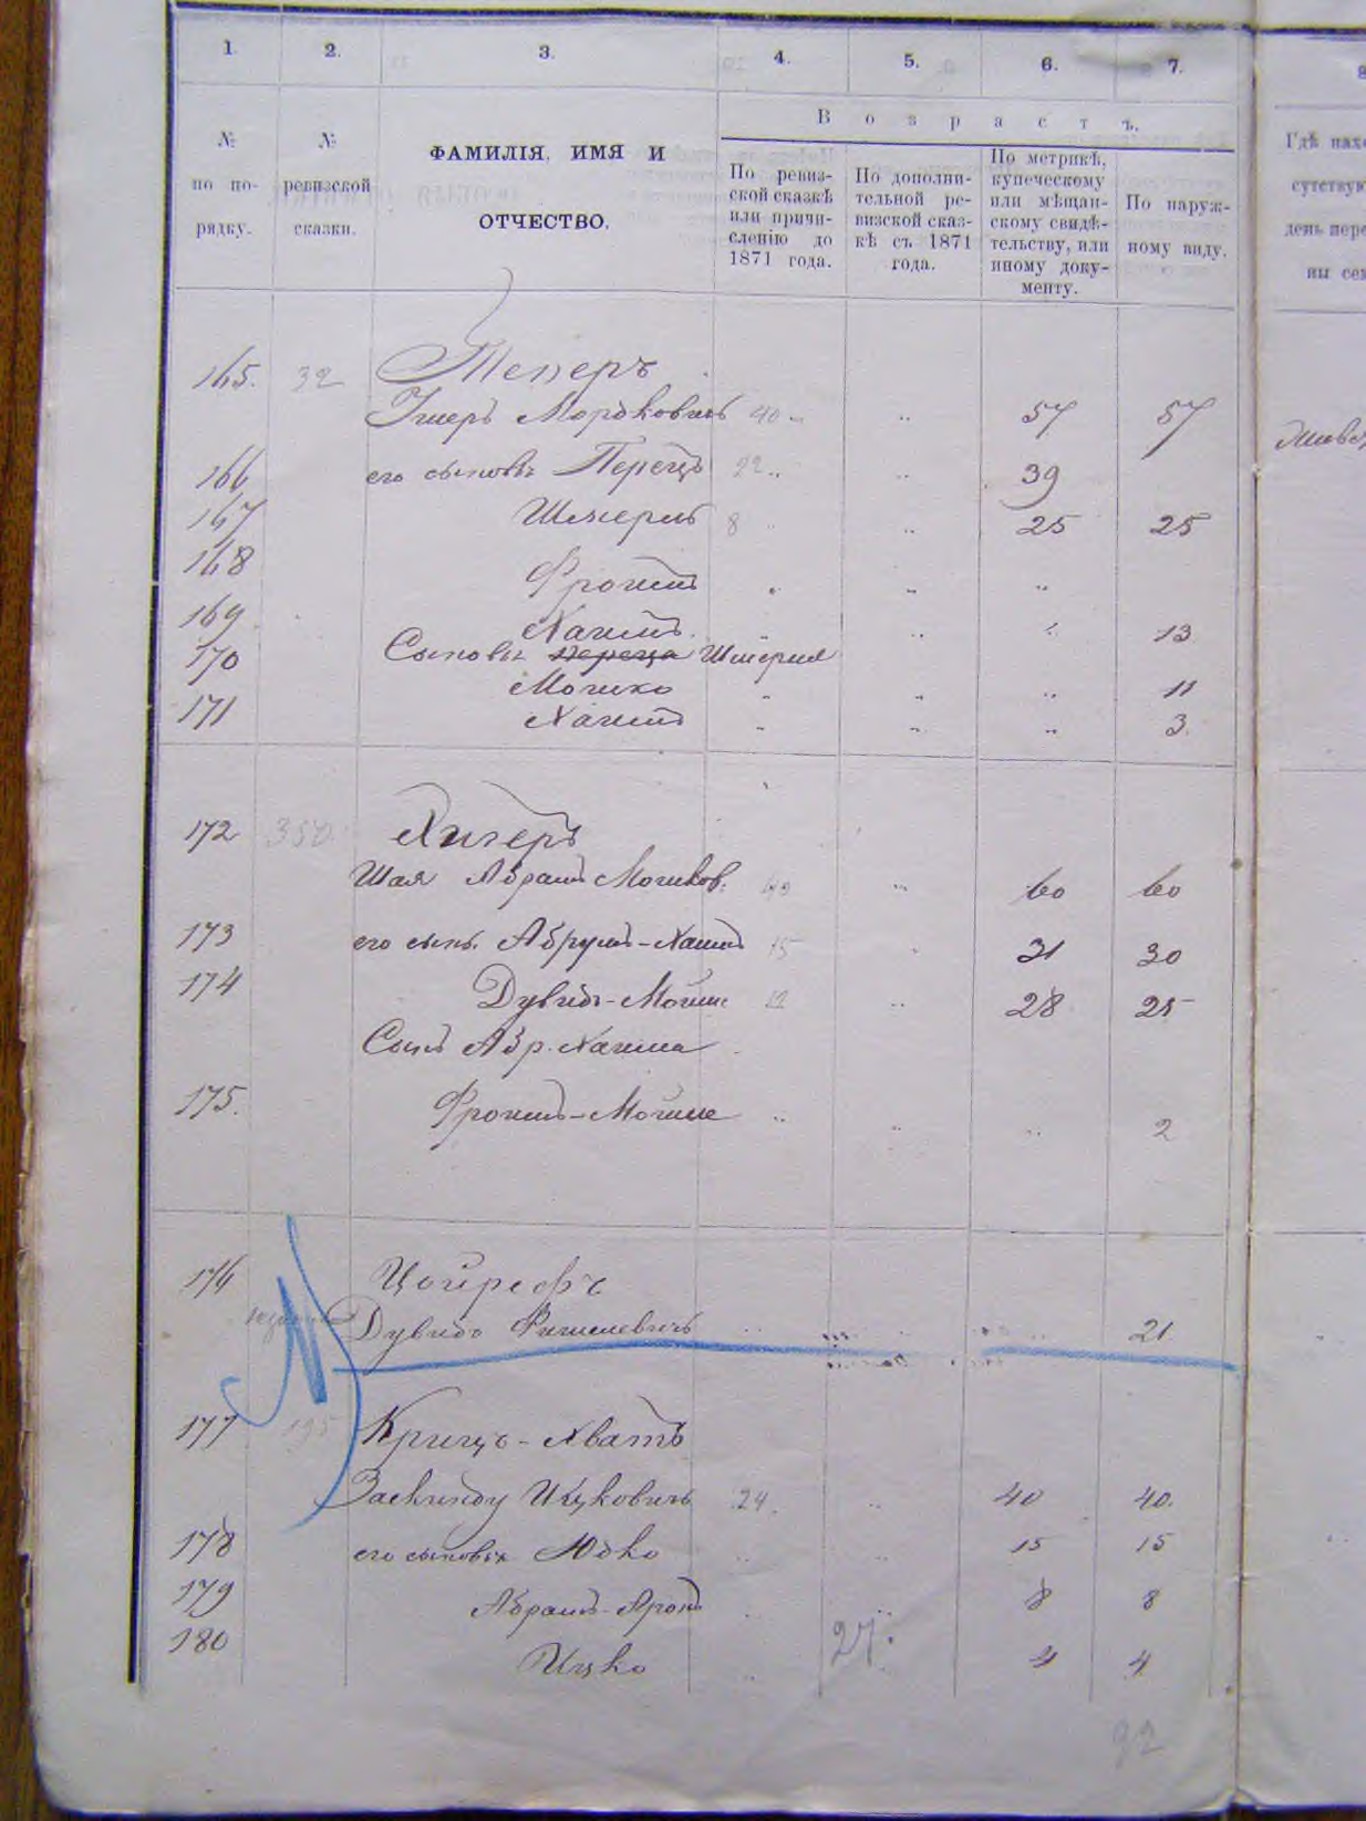 1. 2. 3. 4. 5. 6. 7. 8
№ по по- рядку.
№ ревизской сказки.
ФАМИЛІЯ, ИМЯ И
ОТЧЕСТВО.
Возрастъ.
По ревиз-
ской сказкѣ
или причи-
сленію до
1871 года.
По дополни-
тельной ре-
визской сказ-
кѣ съ 1871
года.
По метрикѣ,
купеческому
или мѣщан-
скому свидѣ-
тельству, или
иному доку-
менту.
По наруж-
ному виду.
Гдѣ
день
165. 32 Теперъ
Ушеръ Мордковичъ 40 57 57
166 его сыновья Перецъ 22 39
167 Шмерль 8 25 25
168 Фроимъ
169 Хаимъ 13
170 Сыновья переца Шмерля
Мошко 11
171 Хаимъ 3
172 350 Хигеръ
Шая Абрамъ Мошков. 60 60
173 его сынъ Абрумъ-Хаимъ 15 31 30
174 Дувидъ-Мошше 12 28 25
Сынъ Абр. Хаима
175. Фроимъ-Мошше 2
176 Цойрефъ
Дувидъ Фишелевичъ 21
177 195 Крицъ-Хватъ
Заскинду Ицковичъ 24. 40 40.
178 его сыновья Юдко 15 15
179 Абрамъ-Аронъ 8 8
180 Ицко 4 4
27.
92